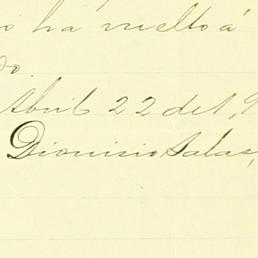 o ha vuelto á
do.
Abril 22 del, 9
Dionisio Salas,